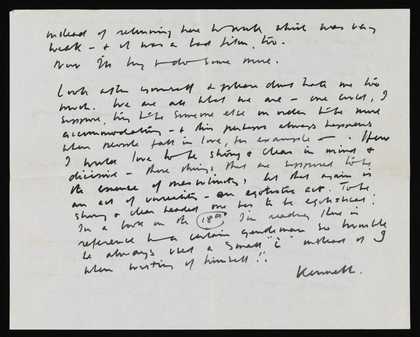 instead of returning here to work which was very
weak - & it was a bad film, too.
Now I'll try & do some more.
Look after yourself & please don't hate me too
much. We are all what we are - one could, I
suppose, try to be someone else in order to be more
accommodating - & this perhaps always happens
when people fall in love, for example - . How
I would love to be strong & clear in mind &
decisive - these things that are supposed to be
the essence of masculinity, but that again is
an act of unreality - an egotistic act. To be
strong & clear headed one has to be egotistical.
In a book on the 18th I'm reading there is
reference to a certain gentleman so humble
he always used a small "i" instead of I
when writing of himself!!
Kenneth.